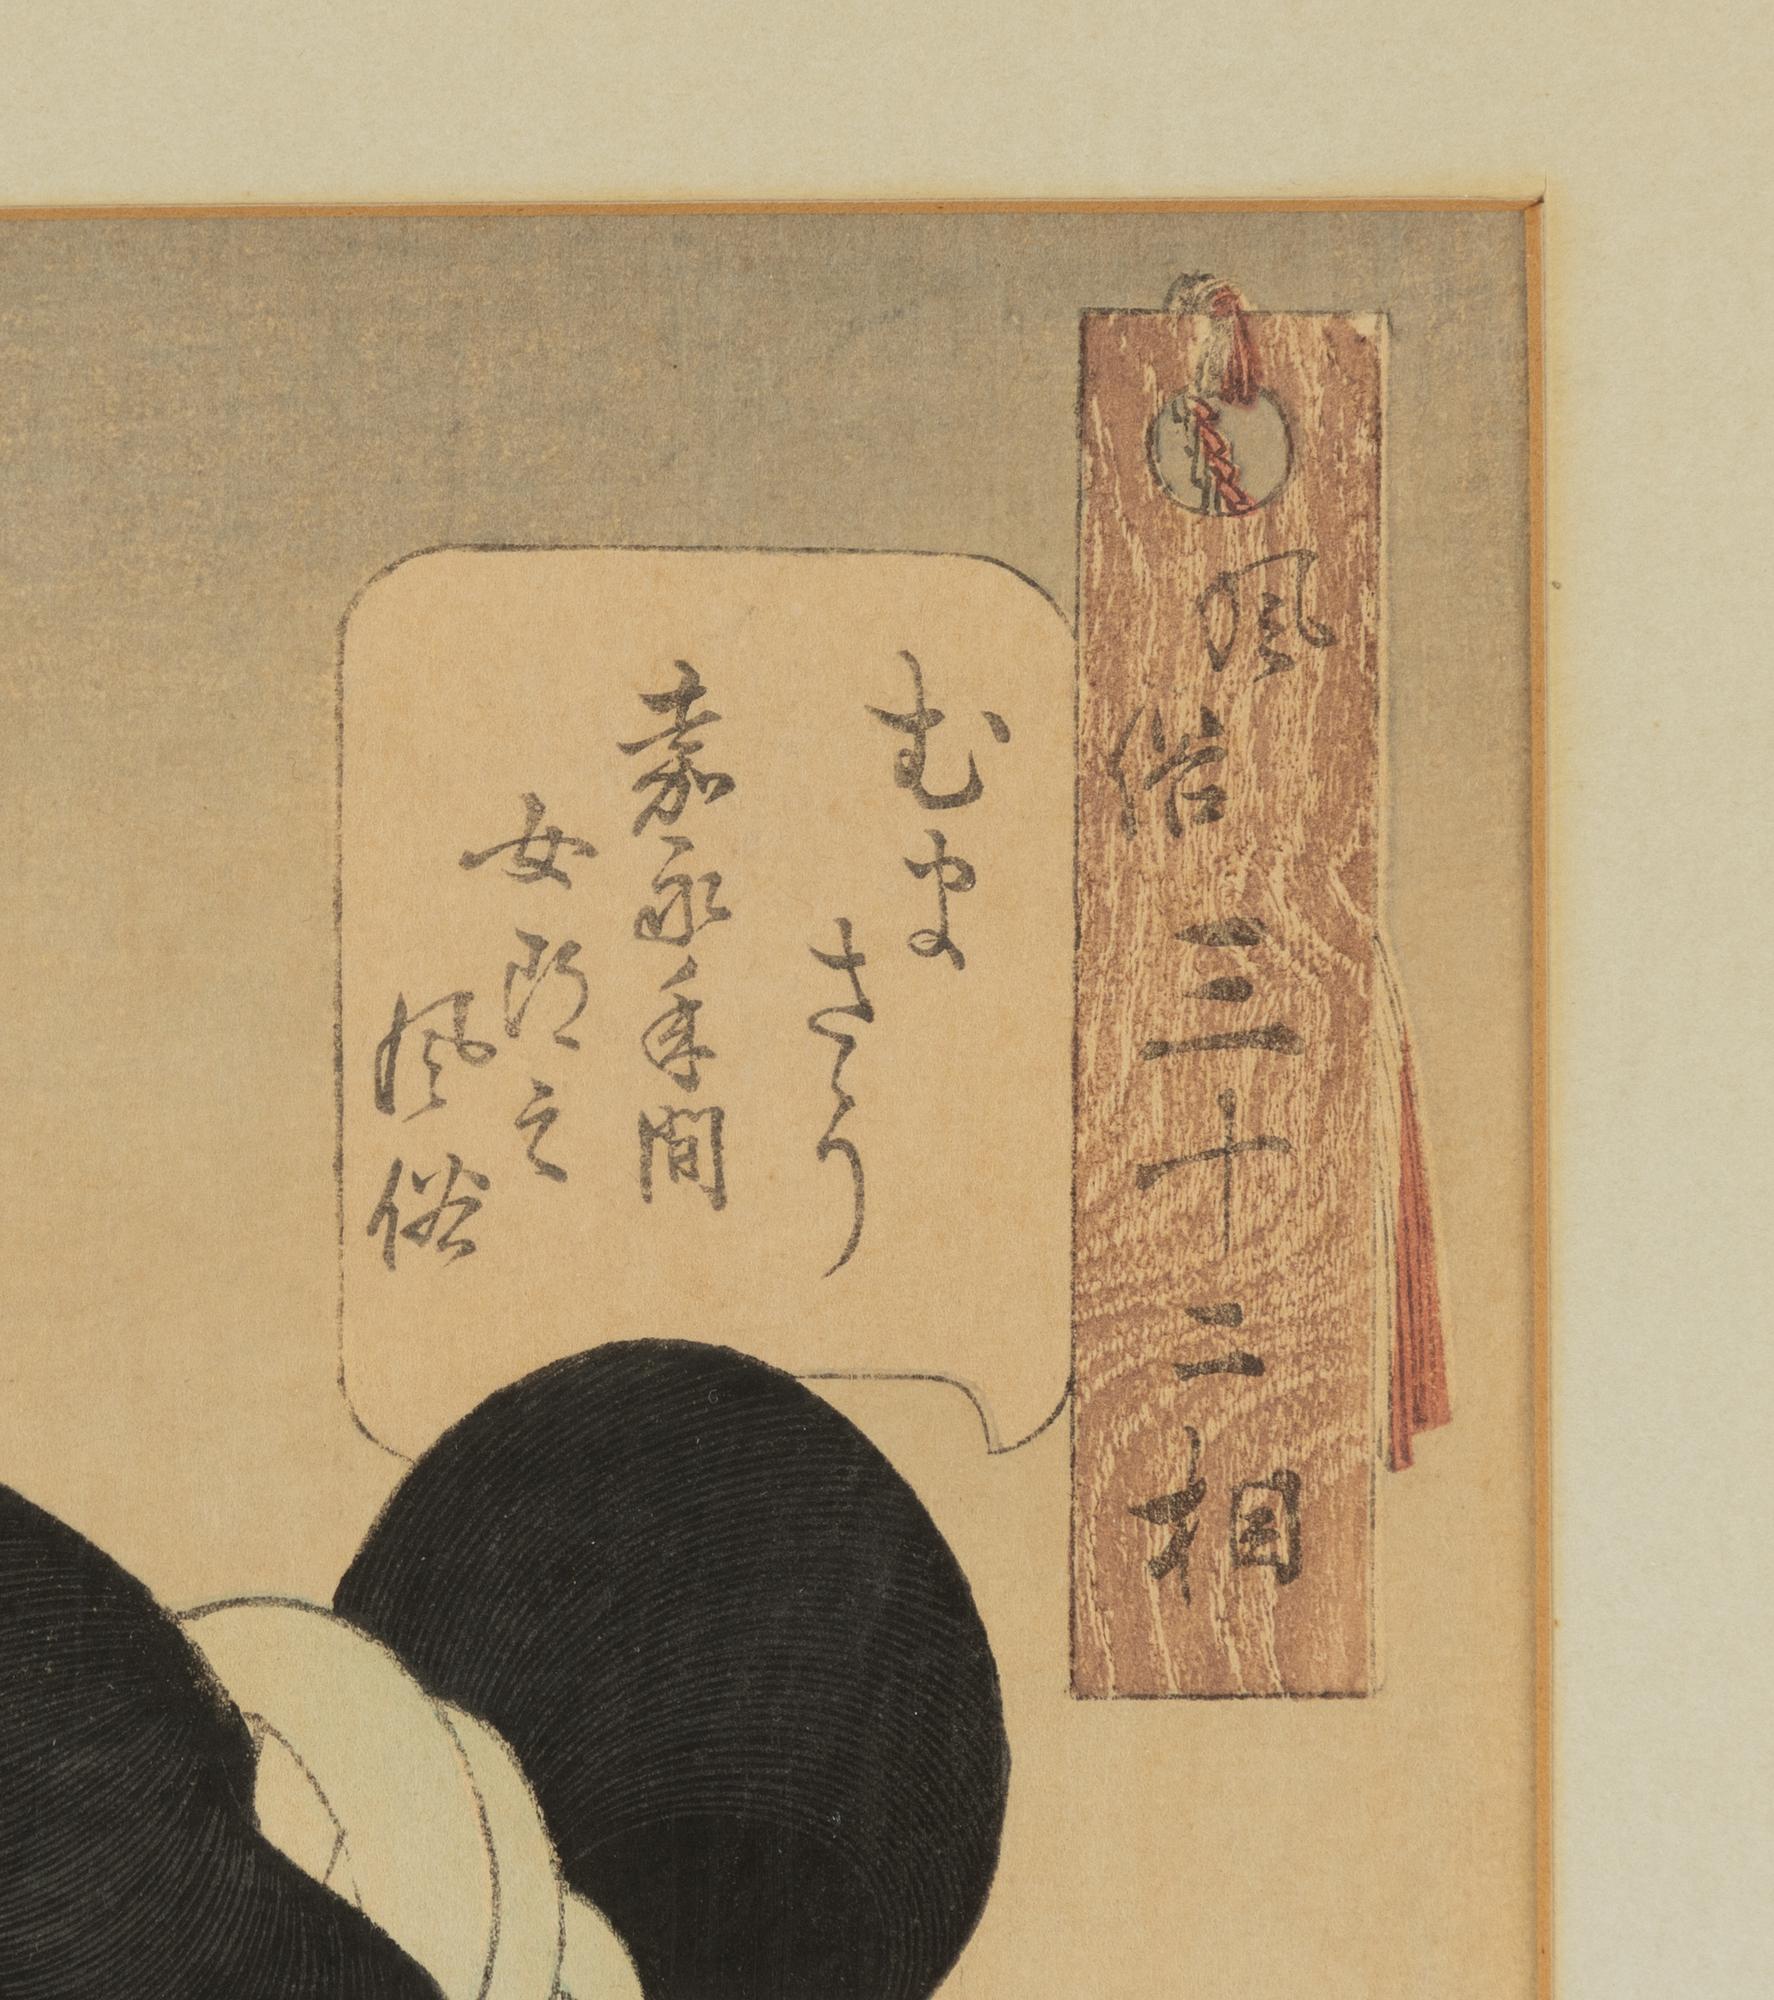 風俗三十二相
むまさう
嘉永年間
女郎之
風俗